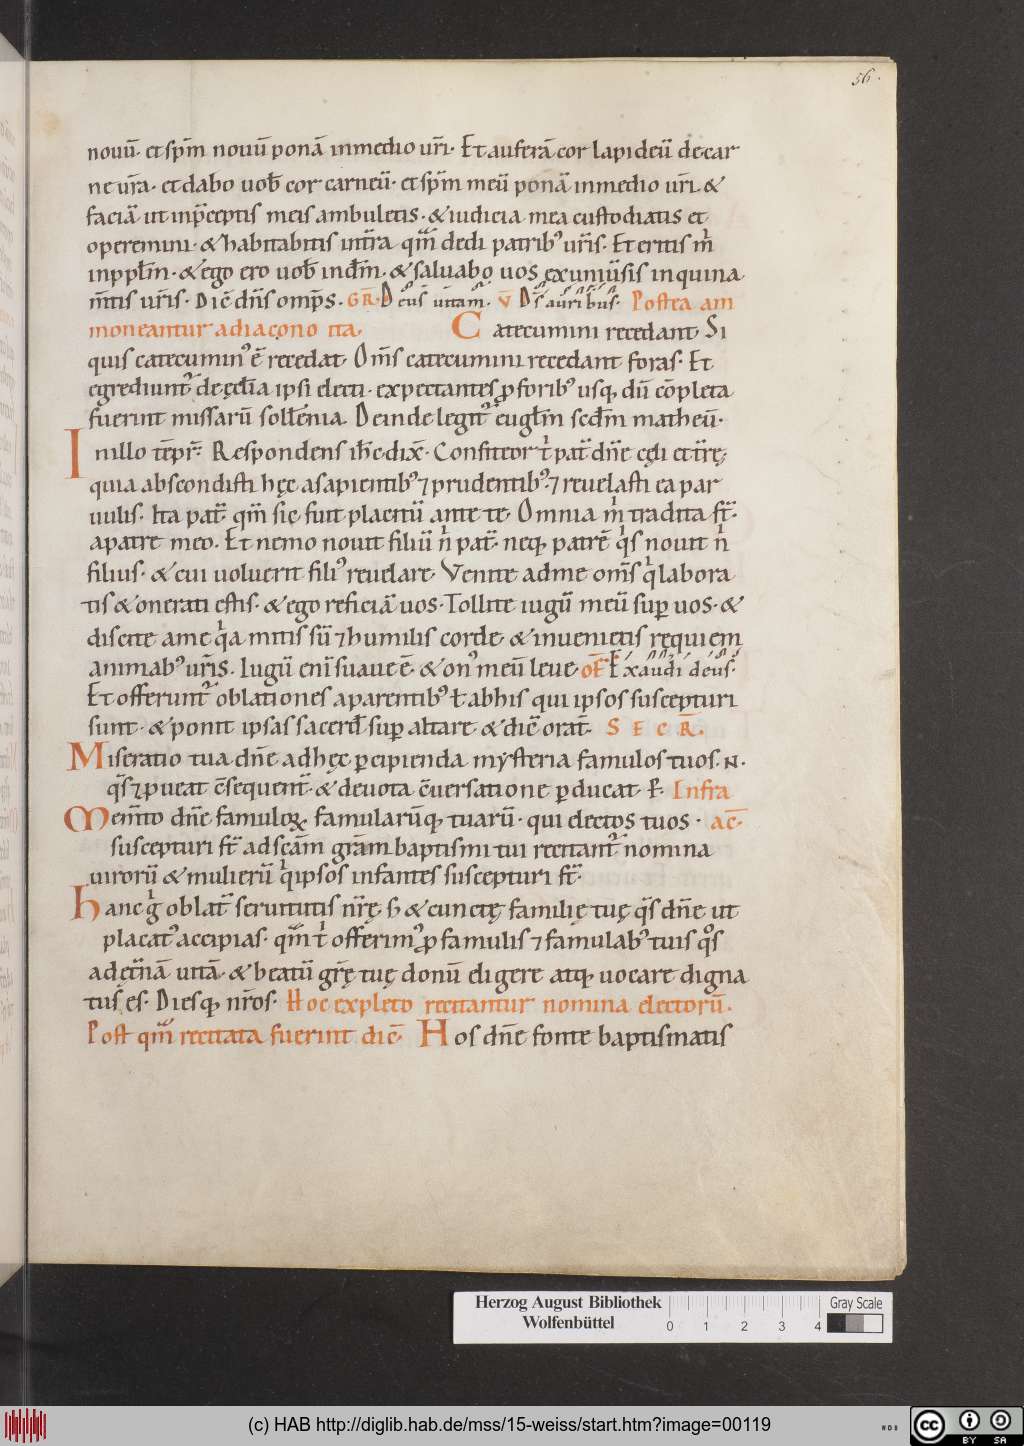 56.
nouū· et sp̄m nouū ponā in medio ur̄i· Et auferā cor lapideū de car
ne ur̄a· et dabo uob̄ cor carneū· et sp̄m meū ponā in medio ur̄i &
faciā ut in p̄ceptis meis ambuletis· & iudicia mea custodiatis et
operemini· & habitabitis in tr̄a qm̄ dedi patribꝰ ur̄is· Et eritis m̄
in ppl̄m· & ego ero uob̄ in dm̄· & saluabo uos ex uniūsis inquina
m̄tis ur̄is· Dic̄ dn̄s omp̄s. GR̄· D cūs uitam· V̄ Ds̄ auribus· Postea am
moneantur a diacono ita. Catecumini recedant· Si
quis catecuminꝰ ē recedat· Om̄s catecumini recedant foras· Et
egrediunt̄ de ęcl̄ia ipsi electi· expectantes p foribꝰ usq; dū cōpleta
fuerint missarū sollēnia. Deinde legit̄ eugl̄m scd̄m matheū·
In illo tēpr̄· Respondens ih̄c dix̄· Confiteor t̄ pat̄ dn̄e cęli et tr̄ę;
quia abscondisti hęc a sapientibꝰ ⁊ prudentibꝰ· ⁊ reuelasti ea par
uulis· Ita pat̄· qm̄ sic fuit placitū ante te· Omnia m̄ tradita st̄·
a patre meo· Et nemo nouit filiū n̄ pat̄· neq; patrē q̄s nouit n̄
filius· & cui uoluerit filiꝰ reuelare· Venite ad me om̄s q̄ labora
tis & onerati estis· & ego reficiā uos· Tollite iugū meū sup̄ uos· &
discite a me q̄a mitis sū ⁊ humilis corde· & inuenietis requiem
animabꝰ ur̄is. Iugū enī suaue ē· & onꝰ meū leue· of̄ Exaudi deus·
Et offerunt̄ oblationes a parentibꝰ ł ab his qui ipsos suscepturi
sunt· & ponit ipsas sacerd̄ sup̄ altare· & dic̄ orat̄· SECR̄.
Miseratio tua dn̄e ad hęc p̄cipienda mysteria famulos tuos· N·
q̄s ⁊ pueat c̄sequent̄· & deuota c̄uersatione p̄ducat· P̄· Infra
Mem̄to dn̄e famuloꝝ famularūq; tuarū· qui electos tuos· ac̄·
suscepturi st̄ ad sc̄am gr̄am baptismi tui recitant̄ nomina
uirorū & mulierū q̄ ipsos infantes suscepturi st̄·
Hanc ḡ oblat̄ seruitutis nr̄ę s̄ & cunctę familię tuę q̄s dn̄e ut
placatꝰ accipias· qm̄ t̄ offerimꝰ p famulis ⁊ famulabꝰ tuis q̊s
ad ęt̄nā uitā· & beatū gr̄ę tuę donū eligere atq; uocare digna
tus es· Diesq; nr̄os· Hoc expleto recitantur nomina electorū·
Post qm̄ recitata fuerint dic̄· Hos dn̄e fonte baptismatis
Herzog August Bibliothek
Wolfenbüttel
0 1 2 3 4
Gray Scale
(c) HAB http://diglib.hab.de/mss/15-weiss/start.htm?image=00119
HAB
cc BY SA